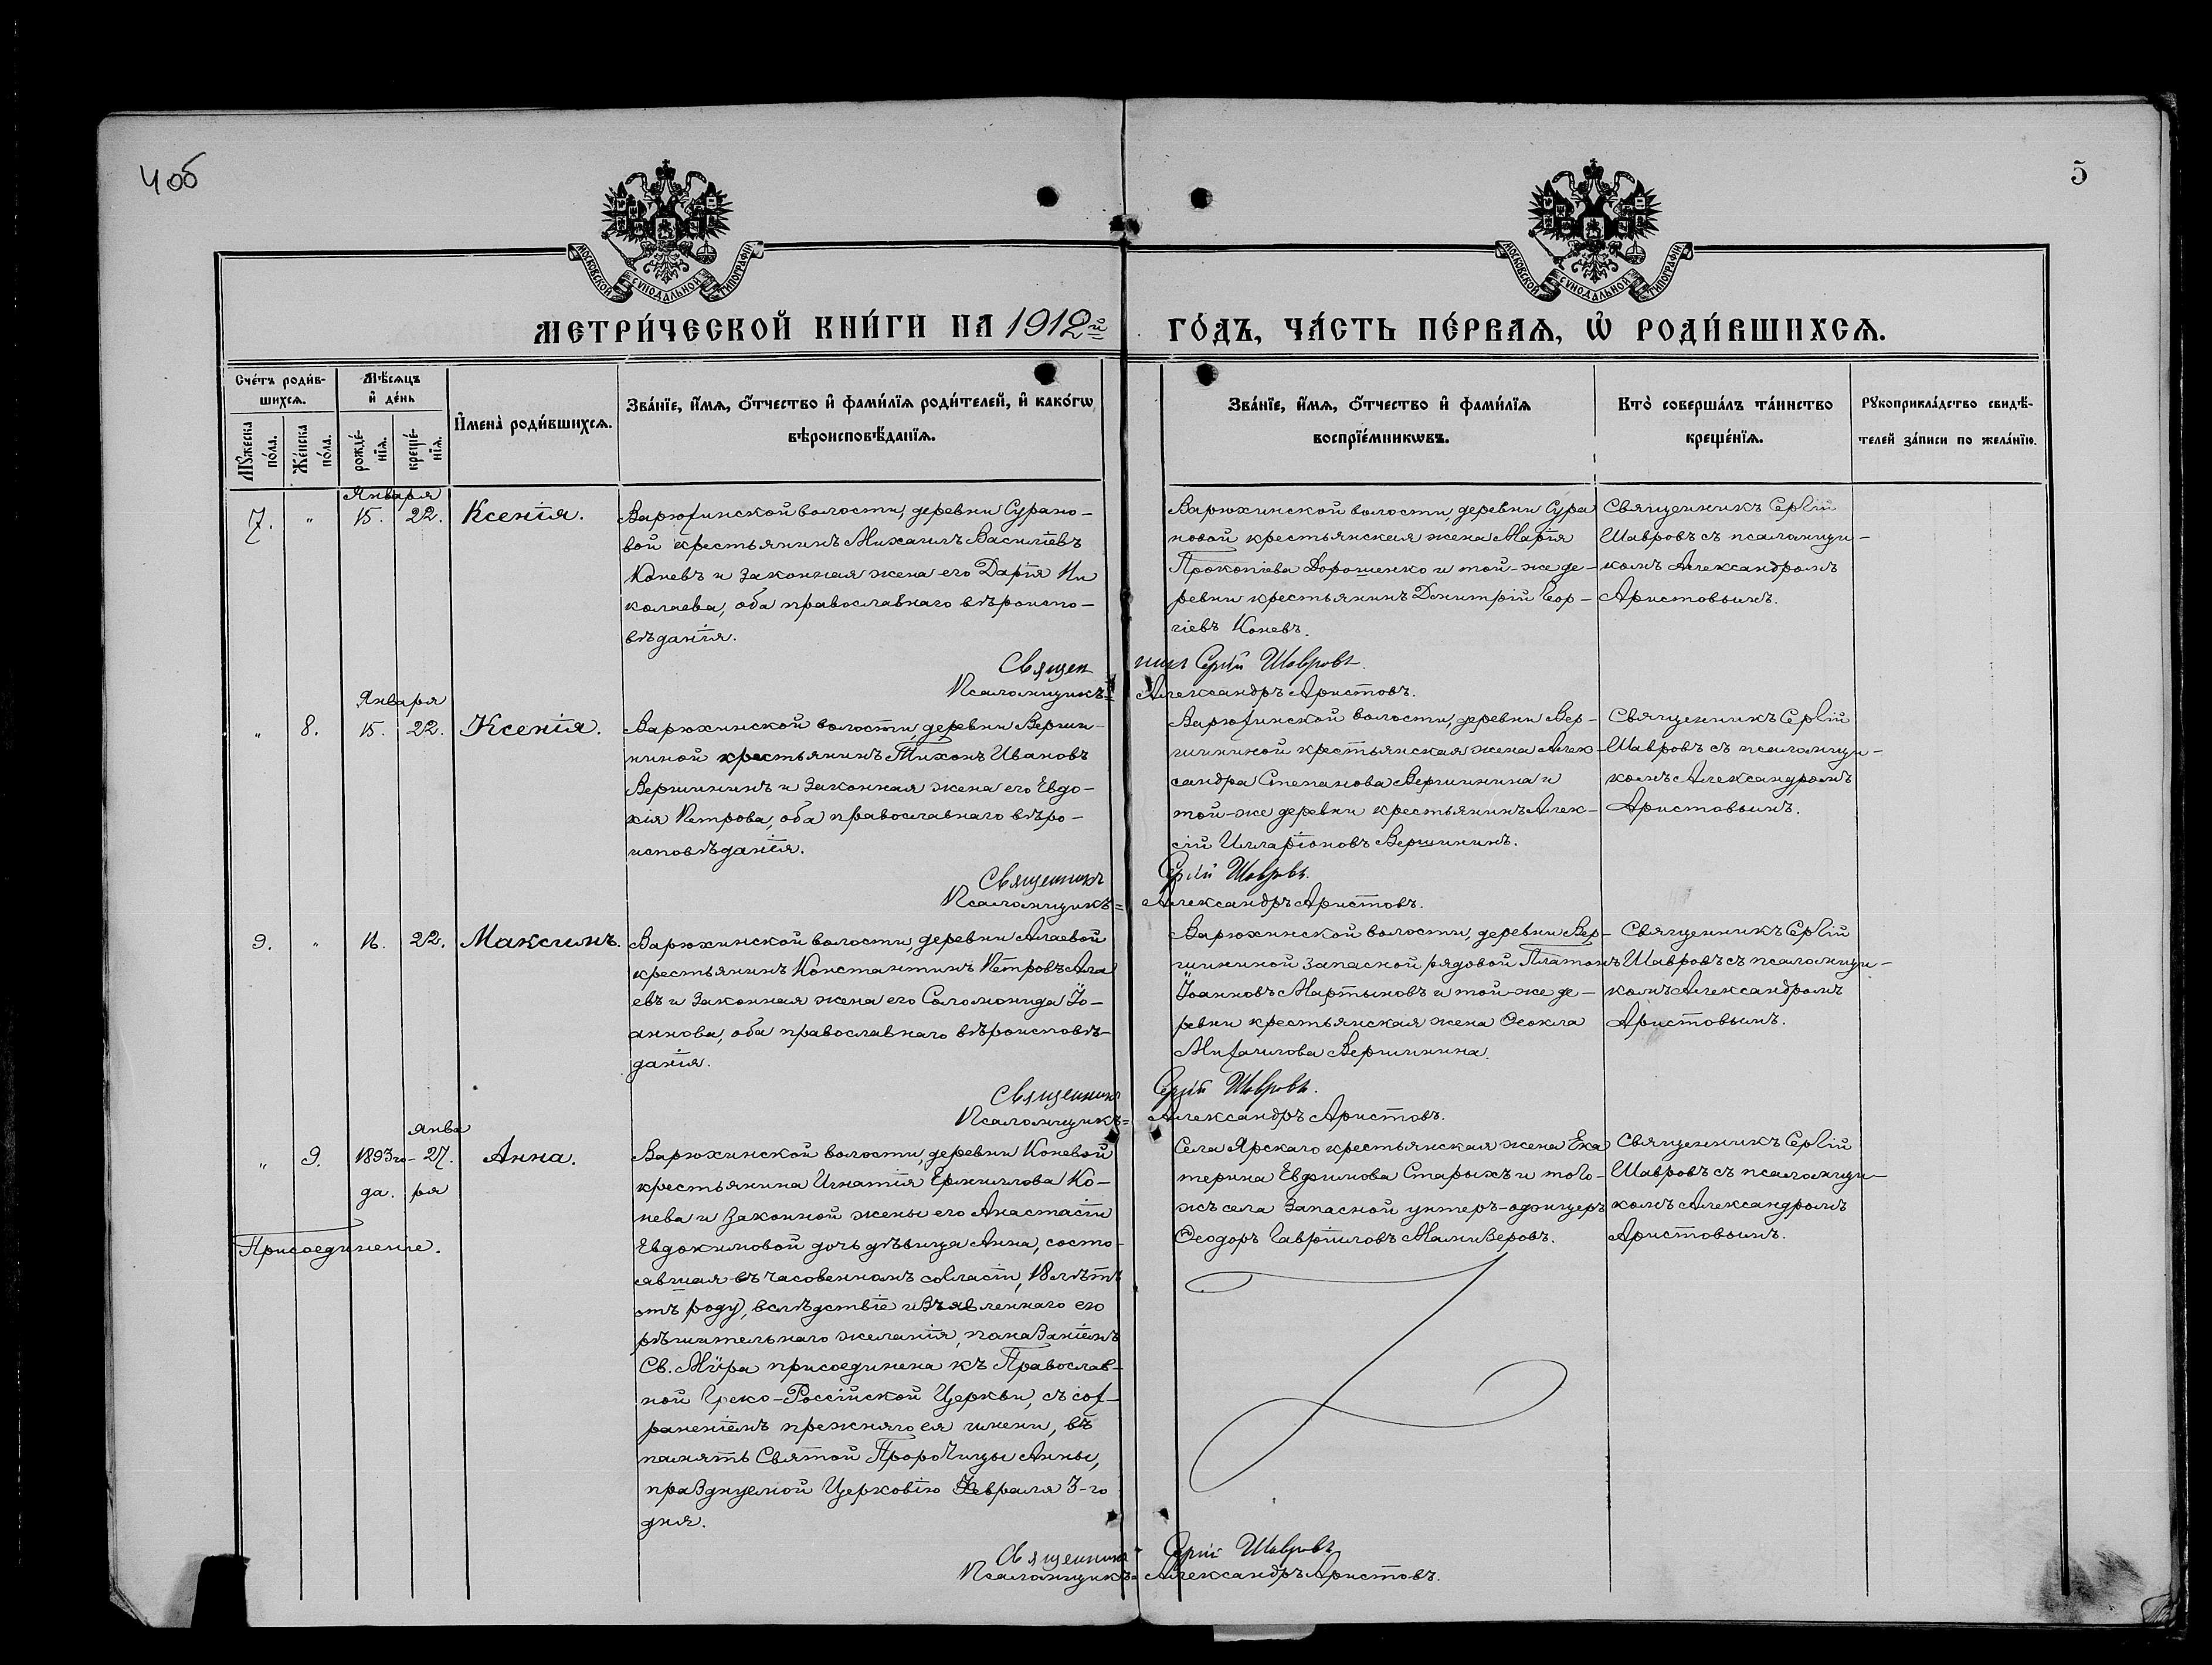 4об
5
МОСКОВСКОЙ СУНОДАЛЬНОЙ ТИПОГРАФІИ
МОСКОВСКОЙ СУНОДАЛЬНОЙ ТИПОГРАФІИ
МЕТРИ́ЧЕСКОЙ КНИ́ГИ НА 1912й ГО́ДЪ, ЧА́СТЬ ПЕ́РВАѦ, Ѡ РОДИ́ВШИХСѦ.
Сче́тъ роди́в-
шихсѧ.
Мꙋжеска по́ла.
Же́нска по́ла.
Мѣ́сѧцъ
и де́нь
рожде́-
нїѧ.
креще́-
нїѧ.
Имена̀ роди́вшихсѧ.
Зва́нїе, и́мѧ, о́тчество и фами́лїѧ роди́телей, и како́гѡ
вѣроисповѣ́данїѧ.
Зва́нїе, и́мѧ, о́тчество и фами́лїѧ
воспрїе́мникѡвъ.
Кто̀ соверша́лъ та́инство
креще́нїѧ.
Рꙋкоприкла́дство свидѣ́-
телей за́писи по жела́нїю.
Января
7. " 15. 22. Ксенія.
Варюхинской волости, деревни Сурано-
вой крестьянинъ Михаилъ Василіевъ
Коневъ и законная жена его Дарія Ни
колаева, оба православнаго вѣроиспо-
вѣданія.
Варюхинской волости, деревни Сура
новой крестьянская жена Марія
Прокопіева Дорошенко и той-же де-
ревни крестьянинъ Димитрій Геор-
гіевъ Коневъ.
Священникъ Сергій
Шавровъ съ псаломщи-
комъ Александромъ
Аристовымъ.
Священникъ Сергій Шавровъ.
Псаломщикъ= Александръ Аристовъ.
Января
" 8. 15. 22. Ксенія.
Варюхинской волости, деревни Верши-
ниной крестьянинъ Тихонъ Ивановъ
Вершининъ и законная жена его Евдо-
кія Петрова, оба православнаго вѣро-
исповѣданія.
Варюхинской волости, деревни Вер-
шининой крестьянская жена Алек-
сандра Степанова Вершинина и
той-же деревни крестьянинъ Алек-
сій Илларіоновъ Вершининъ.
Священникъ Сергій
Шавровъ съ псаломщи-
комъ Александромъ
Аристовымъ.
Священникъ Сергій Шавровъ.
Псаломщикъ= Александръ Аристовъ.
9. " 16. 22. Максимъ.
Варюхинской волости, деревни Алаевой
крестьянинъ Константинъ Петровъ Ала
евъ и законная жена его Соломонида Іо-
аннова, оба православнаго вѣроисповѣ-
данія.
Варюхинской волости, деревни Вер-
шининой запасной рядовой Платонъ
Іоанновъ Мартыновъ и той-же де-
ревни крестьянская жена Ѳеокла
Михаилова Вершинина.
Священникъ Сергій
Шавровъ съ псаломщи-
комъ Александромъ
Аристовымъ.
Священникъ Сергій Шавровъ.
Псаломщикъ= Александръ Аристовъ.
Янва
" 9. 1893го- 27. Анна.
да. ря
Присоединеніе.
Варюхинской волости, деревни Коневой
крестьянина Игнатія Ермилова Ко-
нева и законной жены его Анастасіи
Евдокимовой дочь дѣвица Анна, состо-
явшая въ часовенномъ согласіи, 18 лѣтъ
отъ роду, вслѣдствіе изъявленнаго его
рѣшительнаго желанія, помазаніемъ
Св. Мѵра присоединена къ Православ-
ной Греко-Россійской Церкви, съ сох-
раненіемъ прежняго ея имени, въ
память Святой Пророчицы Анны,
празднуемой Церковію Февраля 3-го
дня.
Села Ярскаго крестьянская жена Ека
терина Евфимова Старыхъ и того-
жъ села запасной унтеръ-офицеръ
Ѳеодоръ Гавріиловъ Маливеровъ.
Священникъ Сергій
Шавровъ съ псаломщи-
комъ Александромъ
Аристовымъ.
Священникъ Сергій Шавровъ
Псаломщикъ= Александръ Аристовъ.